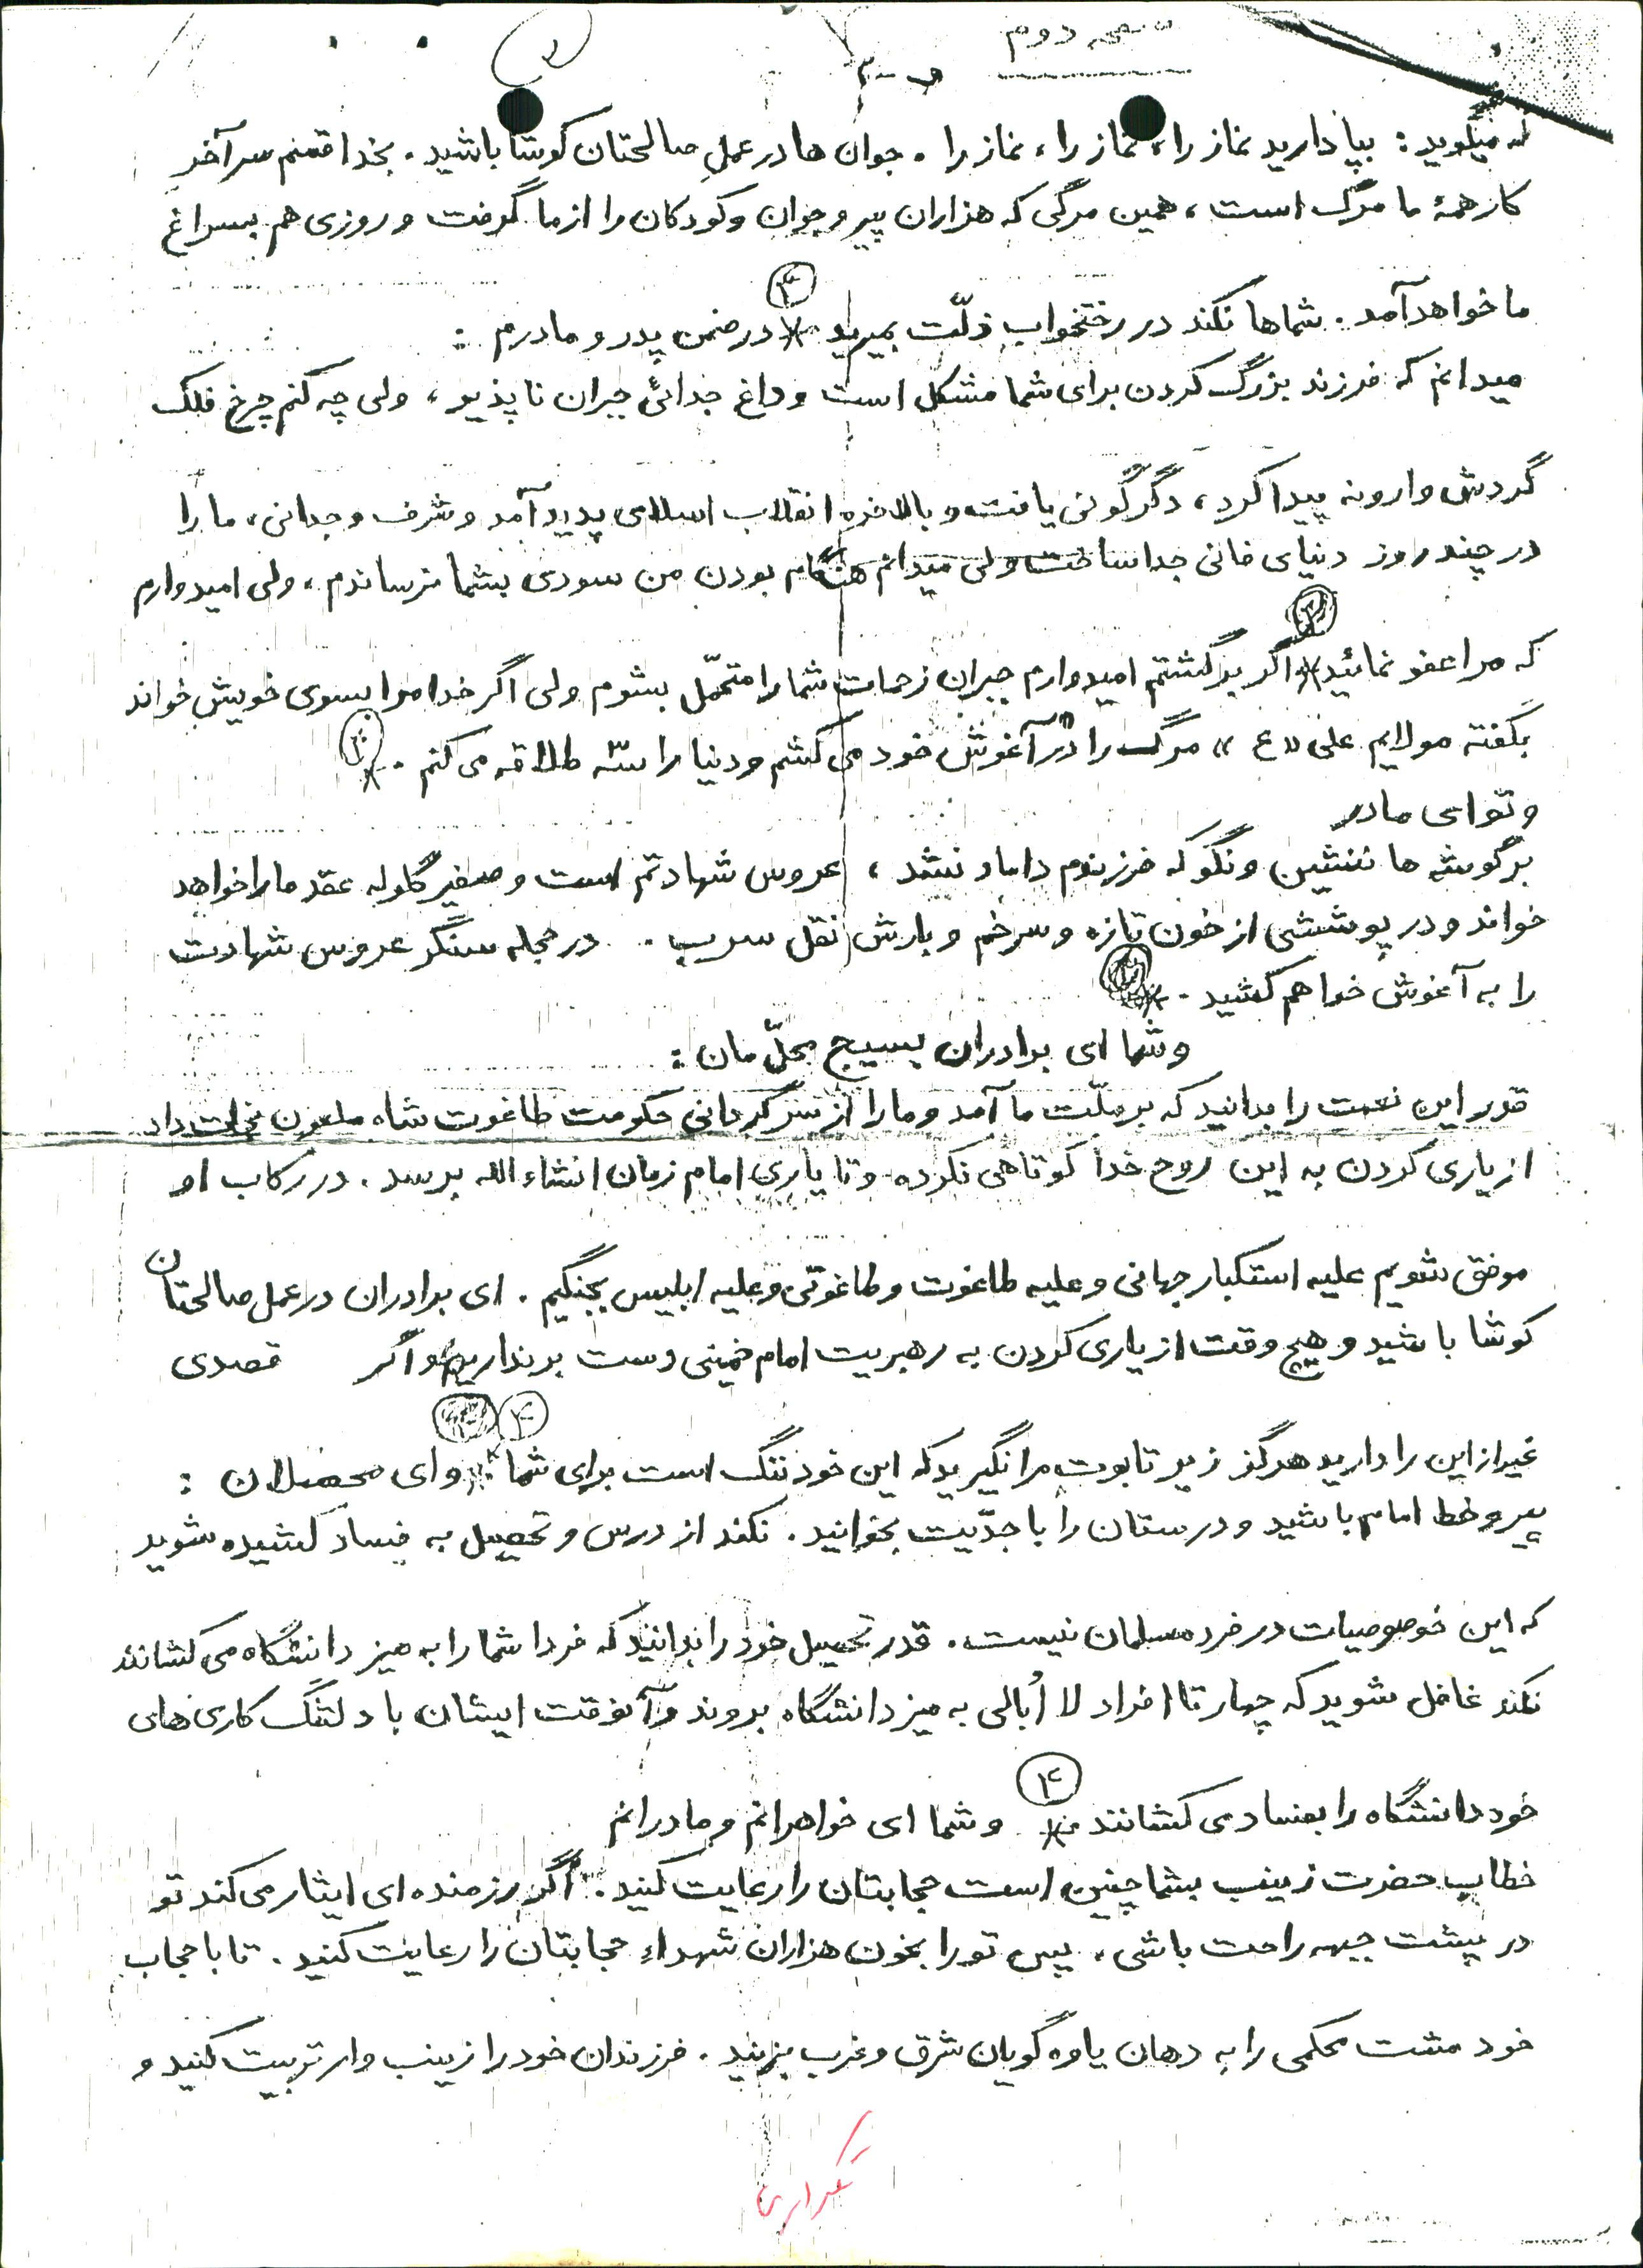 صفحه دوم
۳
که میگوید: بپا دارید نماز را، نماز را، نماز را. جوان ها در عملِ صالحتان کوشا باشید. بخدا قسم سرآخر
کار همهٔ ما مرگ است، همین مرگی که هزاران پیر و جوان و کودکان را از ما گرفت و روزی هم بسراغ
ما خواهد آمد. شماها نکند در رختخواب ذلّت بمیرید * در ضمن پدر و مادرم :
۳
میدانم که فرزند بزرگ کردن برای شما مشکل است و داغ جدائی جبران ناپذیر، ولی چه کنم چرخ فلک
گردش وارونه پیدا کرد، دگرگونی یافت و بالاخره انقلاب اسلامی پدید آمد و شرف وجدانی، ما را
در چند روز دنیای فانی جدا ساخت ولی میدانم هنگام بودن من سودی بشما نرساندم، ولی امیدوارم
که مرا عفو نمائید * اگر برگشتم امیدوارم جبران زحمات شما را متحمّل بشوم ولی اگر خدا مرا بسوی خویش خواند
بگفته مولایم علی «ع» مرگ را در آغوش خود می کشم و دنیا را سه طلاقه می کنم . *
و تو ای مادر
بر گوشه ها ننشین و نگو که فرزندم داماد نشد، عروس شهادتم است و صفیر گلوله عقد ما را خواهد
خواند و در پوششی از خون تازه و سرخم و بارش نقل سرب . در حجله سنگر عروس شهادت
را به آغوش خواهم کشید . *
و شما ای برادران بسیج محلّ مان :
قدر این نعمت را بدانید که بر ملّت ما آمد و ما را از سرگردانی حکومت طاغوت شاه ملعون نجات داد
از یاری کردن به این روح خدا کوتاهی نکرده و تا یاری امام زمان انشاء الله برسد . در رکاب او
موفق شویم علیه استکبار جهانی و علیه طاغوت و طاغوتی و علیه ابلیس بجنگیم . ای برادران در عمل صالحتان
کوشا باشید و هیچ وقت از یاری کردن به رهبریت امام خمینی دست برندارید و اگر قصدی
غیر از این را دارید هرگز زیر تابوت مرا نگیرید که این خود ننگ است برای شما . * و ای محصلان :
۴
پیرو خط امام باشید و درستان را با جدّیت بخوانید . نکند از درس و تحصیل به فساد کشیده شوید
که این خصوصیات در فرد مسلمان نیست . قدر تحصیل خود را بدانید که فردا شما را به میز دانشگاه می کشانند
نکند غافل شوید که چهار تا افراد لا اُبالی به میز دانشگاه بروند و آنوقت ایشان با دلتنگ کاری های
خود دانشگاه را بفسادی کشانند . * و شما ای خواهرانم و مادرانم
۴
خطاب حضرت زینب بشما چنین است حجابتان را رعایت کنید . اگر رزمنده ای ایثار می کند تو
در پشت جبهه راحت باشی، پس تو را بخون هزاران شهداء حجابتان را رعایت کنید . تا با حجاب
خود مشت محکمی را به دهان یاوه گویان شرق و غرب بزنید . فرزندان خود را زینب وار تربیت کنید و